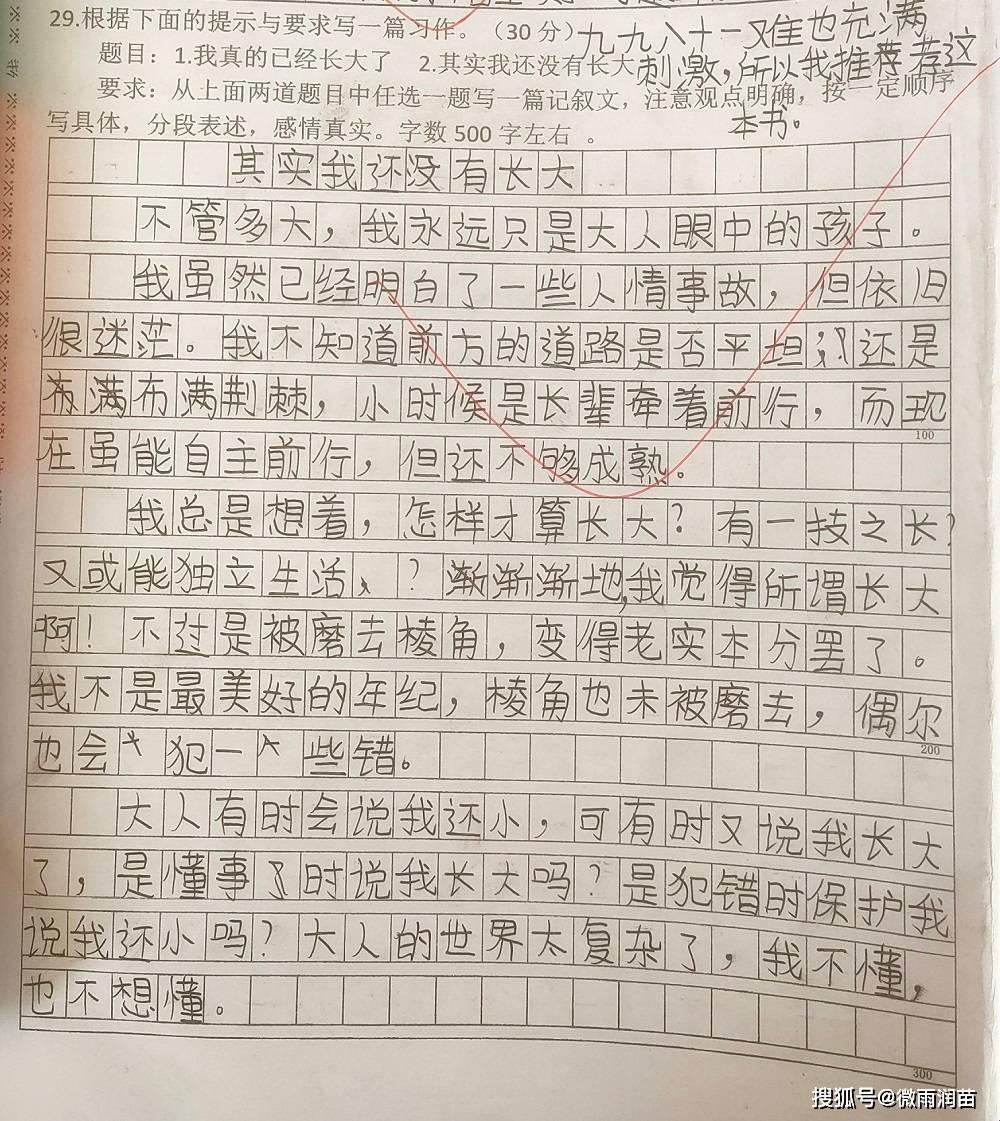 29.根据下面的提示与要求写一篇习作。（30 分）九九八十一难也充满
题目：1.我真的已经长大了 2.其实我还没有长大 刺激，所以我推荐荐这
要求：从上面两道题目中任选一题写一篇记叙文，注意观点明确，按一定顺序
本书。
写具体，分段表述，感情真实。字数 500 字左右 。
其实我还没有长大
不管多大，我永远只是大人眼中的孩子。
我虽然已经明白了一些人情事故，但依旧
很迷茫。我不知道前方的道路是否平坦，还是
布满布满荆棘，小时候是长辈牵着前行，而现
100
在虽能自主前行，但还不够成熟。
我总是想着，怎样才算长大？有一技之长？
又或能独立生活、？渐渐渐地，我觉得所谓长大
啊！不过是被磨去棱角，变得老实本分罢了。
我不是最美好的年纪，棱角也未被磨去，偶尔
200
也会犯一些错。
大人有时会说我还小，可有时又说我长大
了，是懂事了时说我长大吗？是犯错时保护我
说我还小吗？大人的世界太复杂了，我不懂，
也不想懂。
300
搜狐号@微雨润苗